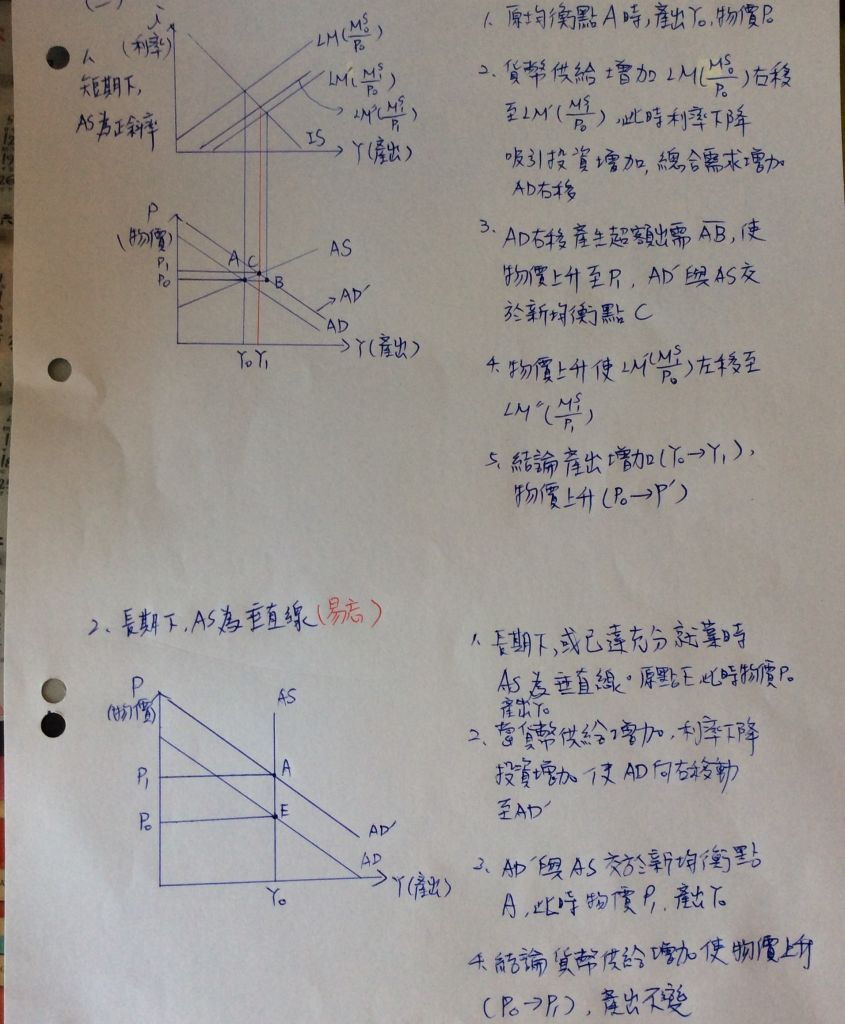 (一)
1.
短期下,
AS為正斜率
i
(利率)
LM(M₀ˢ/P₀)
LM'(M₁ˢ/P₀)
LM"(M₁ˢ/P₁)
IS
Y(產出)
P
(物價)
P₁
P₀
A
C
B
AS
AD'
AD
Y₀
Y₁
Y(產出)
1. 原均衡點A時,產出Y₀,物價P₀
2. 貨幣供給增加LM(M₀ˢ/P₀)右移
至LM'(M₁ˢ/P₀),此時利率下降
吸引投資增加,總合需求增加
AD右移
3. AD右移產生超額需 AB,使
物價上升至P₁, AD'與AS交
於新均衡點C
4. 物價上升使LM'(M₁ˢ/P₀)左移至
LM"(M₁ˢ/P₁)
5. 結論產出增加(Y₀→Y₁),
物價上升(P₀→P')
2、長期下,AS為垂直線(易忘)
P
(物價)
P₁
P₀
AS
A
E
AD'
AD
Y₀
Y(產出)
1. 長期下,或已達充分就業時
AS為垂直線。原點E此時物價P₀
產出Y₀
2、當貨幣供給增加,利率下降
投資增加 使AD向右移動
至AD'
3、AD'與AS交於新均衡點
A,此時物價P₁,產出Y₀
4. 結論貨幣供給增加使物價上升
(P₀→P₁),產出不變